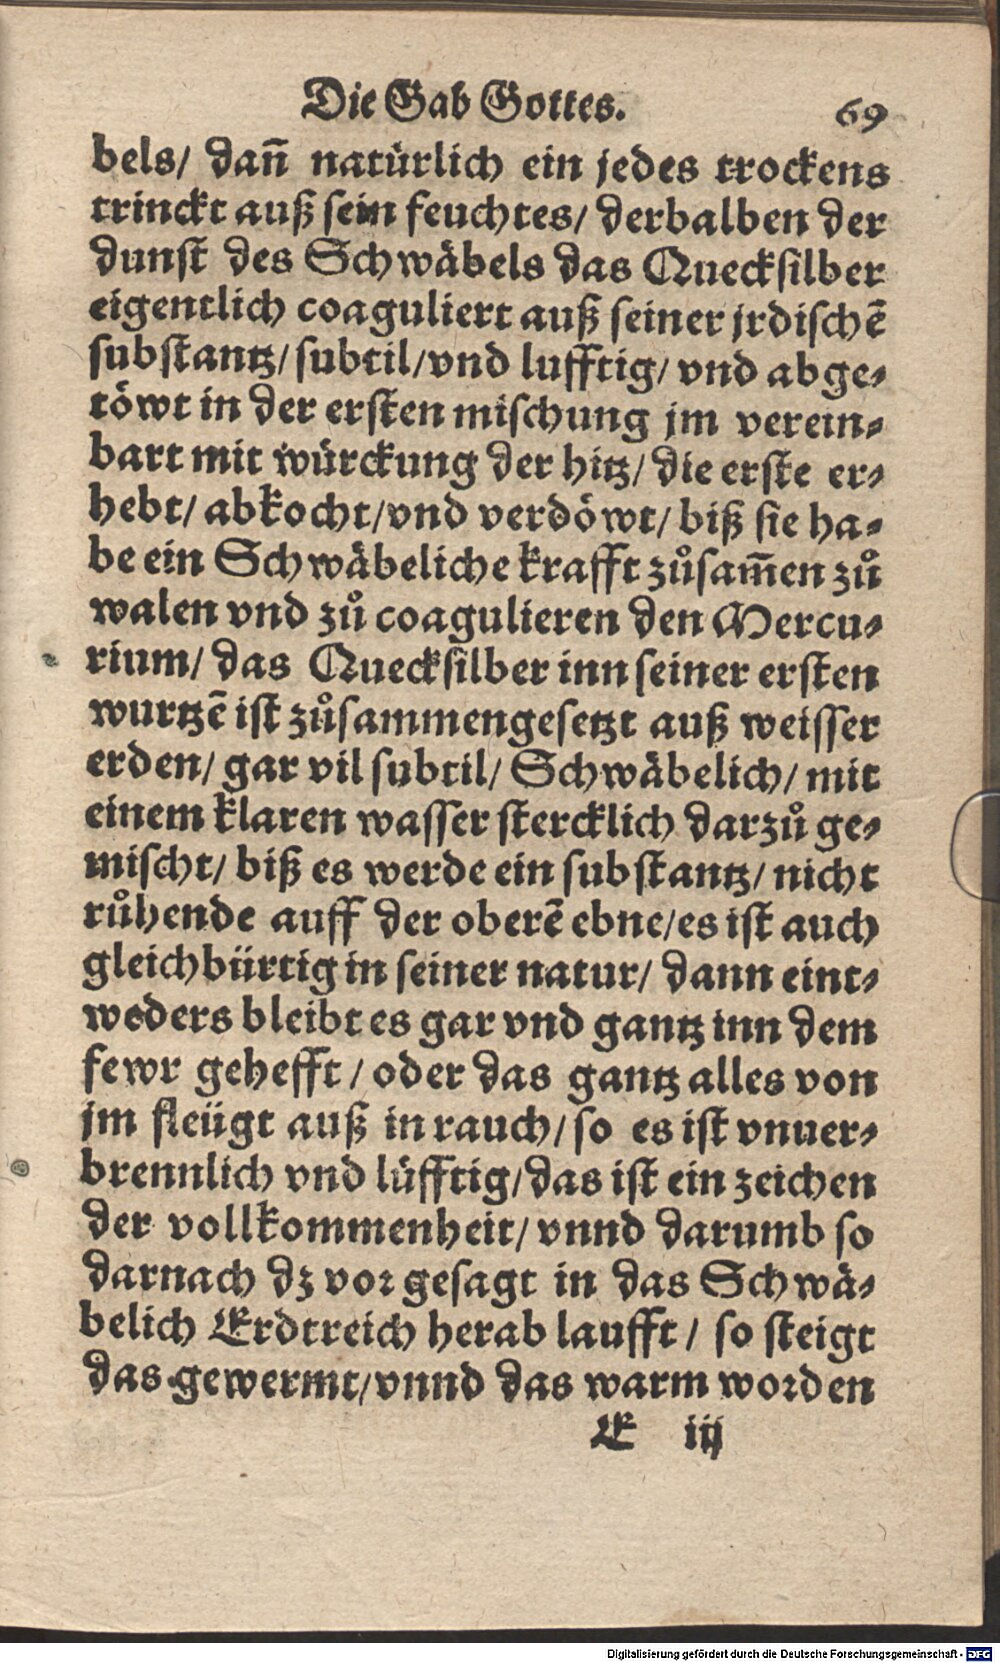 Die Gab Gottes. 69
bels/ dañ natürlich ein jedes trockens
trinckt auß sein feuchtes/ derbalben der
dunst des Schwäbels das Quecksilber
eigentlich coaguliert auß seiner jrdischē
substantz/ subtil/ vnd lufftig/ vnd abge⸗
töwt in der ersten mischung jm verein⸗
bart mit würckung der hitz/ die erste er⸗
hebt/ abkocht/ vnd verdöwt/ biß sie ha⸗
be ein Schwäbeliche krafft zůsam̄en zů
walen vnd zů coagulieren den Mercu⸗
rium/ das Quecksilber inn seiner ersten
wurtzē ist zůsammengesetzt auß weisser
erden/ gar vil subtil/ Schwäbelich/ mit
einem klaren wasser stercklich darzů ge⸗
mischt/ biß es werde ein substantz/ nicht
růhende auff der oberē ebne/ es ist auch
gleichbürtig in seiner natur/ dann eint⸗
weders bleibt es gar vnd gantz inn dem
fewr gehefft / oder das gantz alles von
jm fleügt auß in rauch/ so es ist vnuer⸗
brennlich vnd lüfftig/ das ist ein zeichen
der vollkommenheit/ vnnd darumb so
darnach dz vor gesagt in das Schwä⸗
belich Erdtreich herab laufft / so steigt
das gewermt/ vnnd das warm worden
E iij
Digitalisierung gefördert durch die Deutsche Forschungsgemeinschaft - DFG